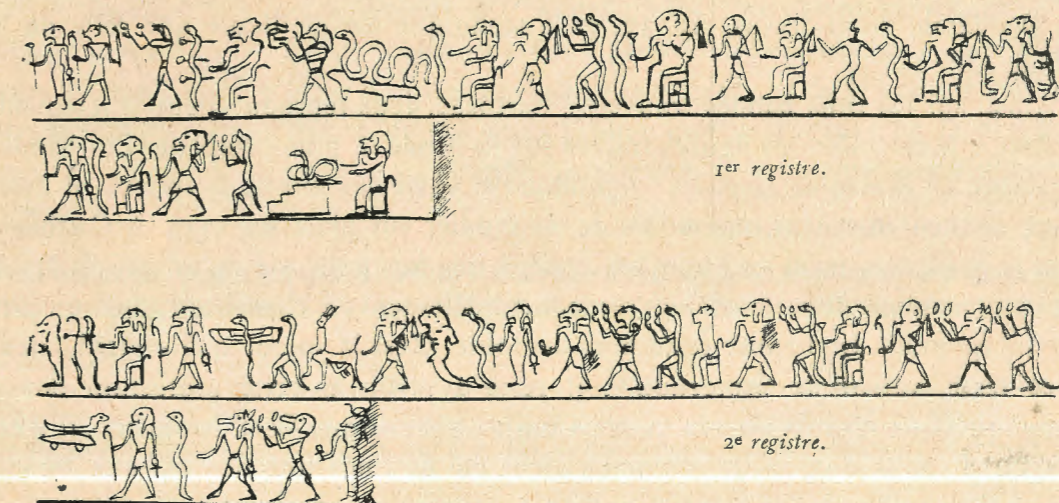 1er registre.
2e registre.